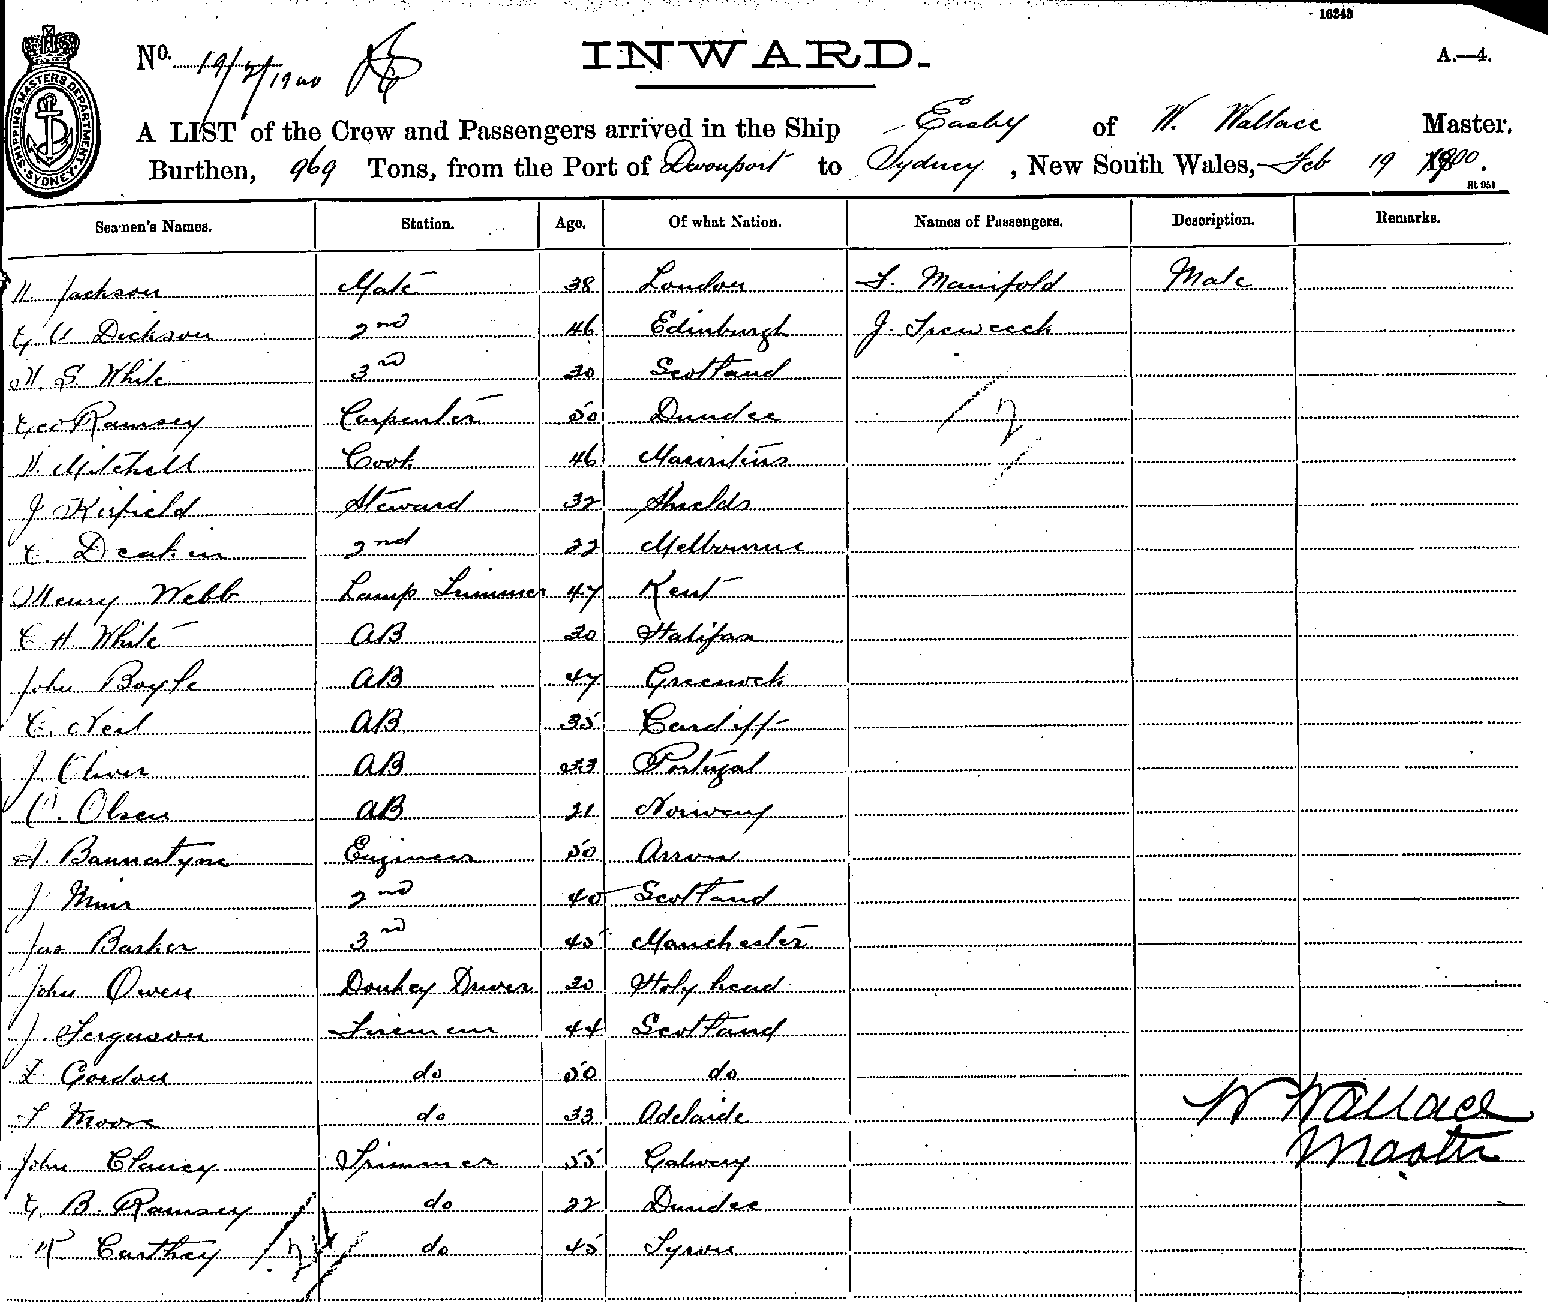 16243
No. 19/2/1900 INWARD. A.—4.
SHIPPING MASTERS DEPARTMENT SYDNEY
A LIST of the Crew and Passengers arrived in the Ship Easby of W. Wallace Master.
Burthen, 969 Tons, from the Port of Devonport to Sydney, New South Wales, Feb 19 1900.
Seamen's Names. Station. Age. Of what Nation. Names of Passengers. Description. Remarks.
H. Jackson Mate 38 London F. Manifold Male
Dickson 2nd 46 Edinburgh J.
S White 3rd 30 Scotland
Geo Ramsey Carpenter 50 Dundee
Mitchell Cook 46 Mauritius
J Kirfield Steward 32 Shields
C. Deakin 2nd 22 Melbourne
Henry Webb Lamp Trimmer 47 Kent
C H White AB 30 Halifax
John Boyle AB 47 Greenock
C. Neil AB 35 Cardiff
J Oliver AB 33 Portugal
O. Olsen AB 21 Norway
Bannatyne Engineer 50 Arran
J Muir 2nd 40 Scotland
Jas Barker 3rd 45 Manchester
John Owen Donkey Driver 30 Holyhead
J. Ferguson Fireman 44 Scotland
Gordon do 50 do
T Moore do 33 Adelaide
W Wallace
John Clancy Trimmer 55 Galway
Master
G. B. Ramsey do 22 Dundee
Carthey do 45 Tyrone